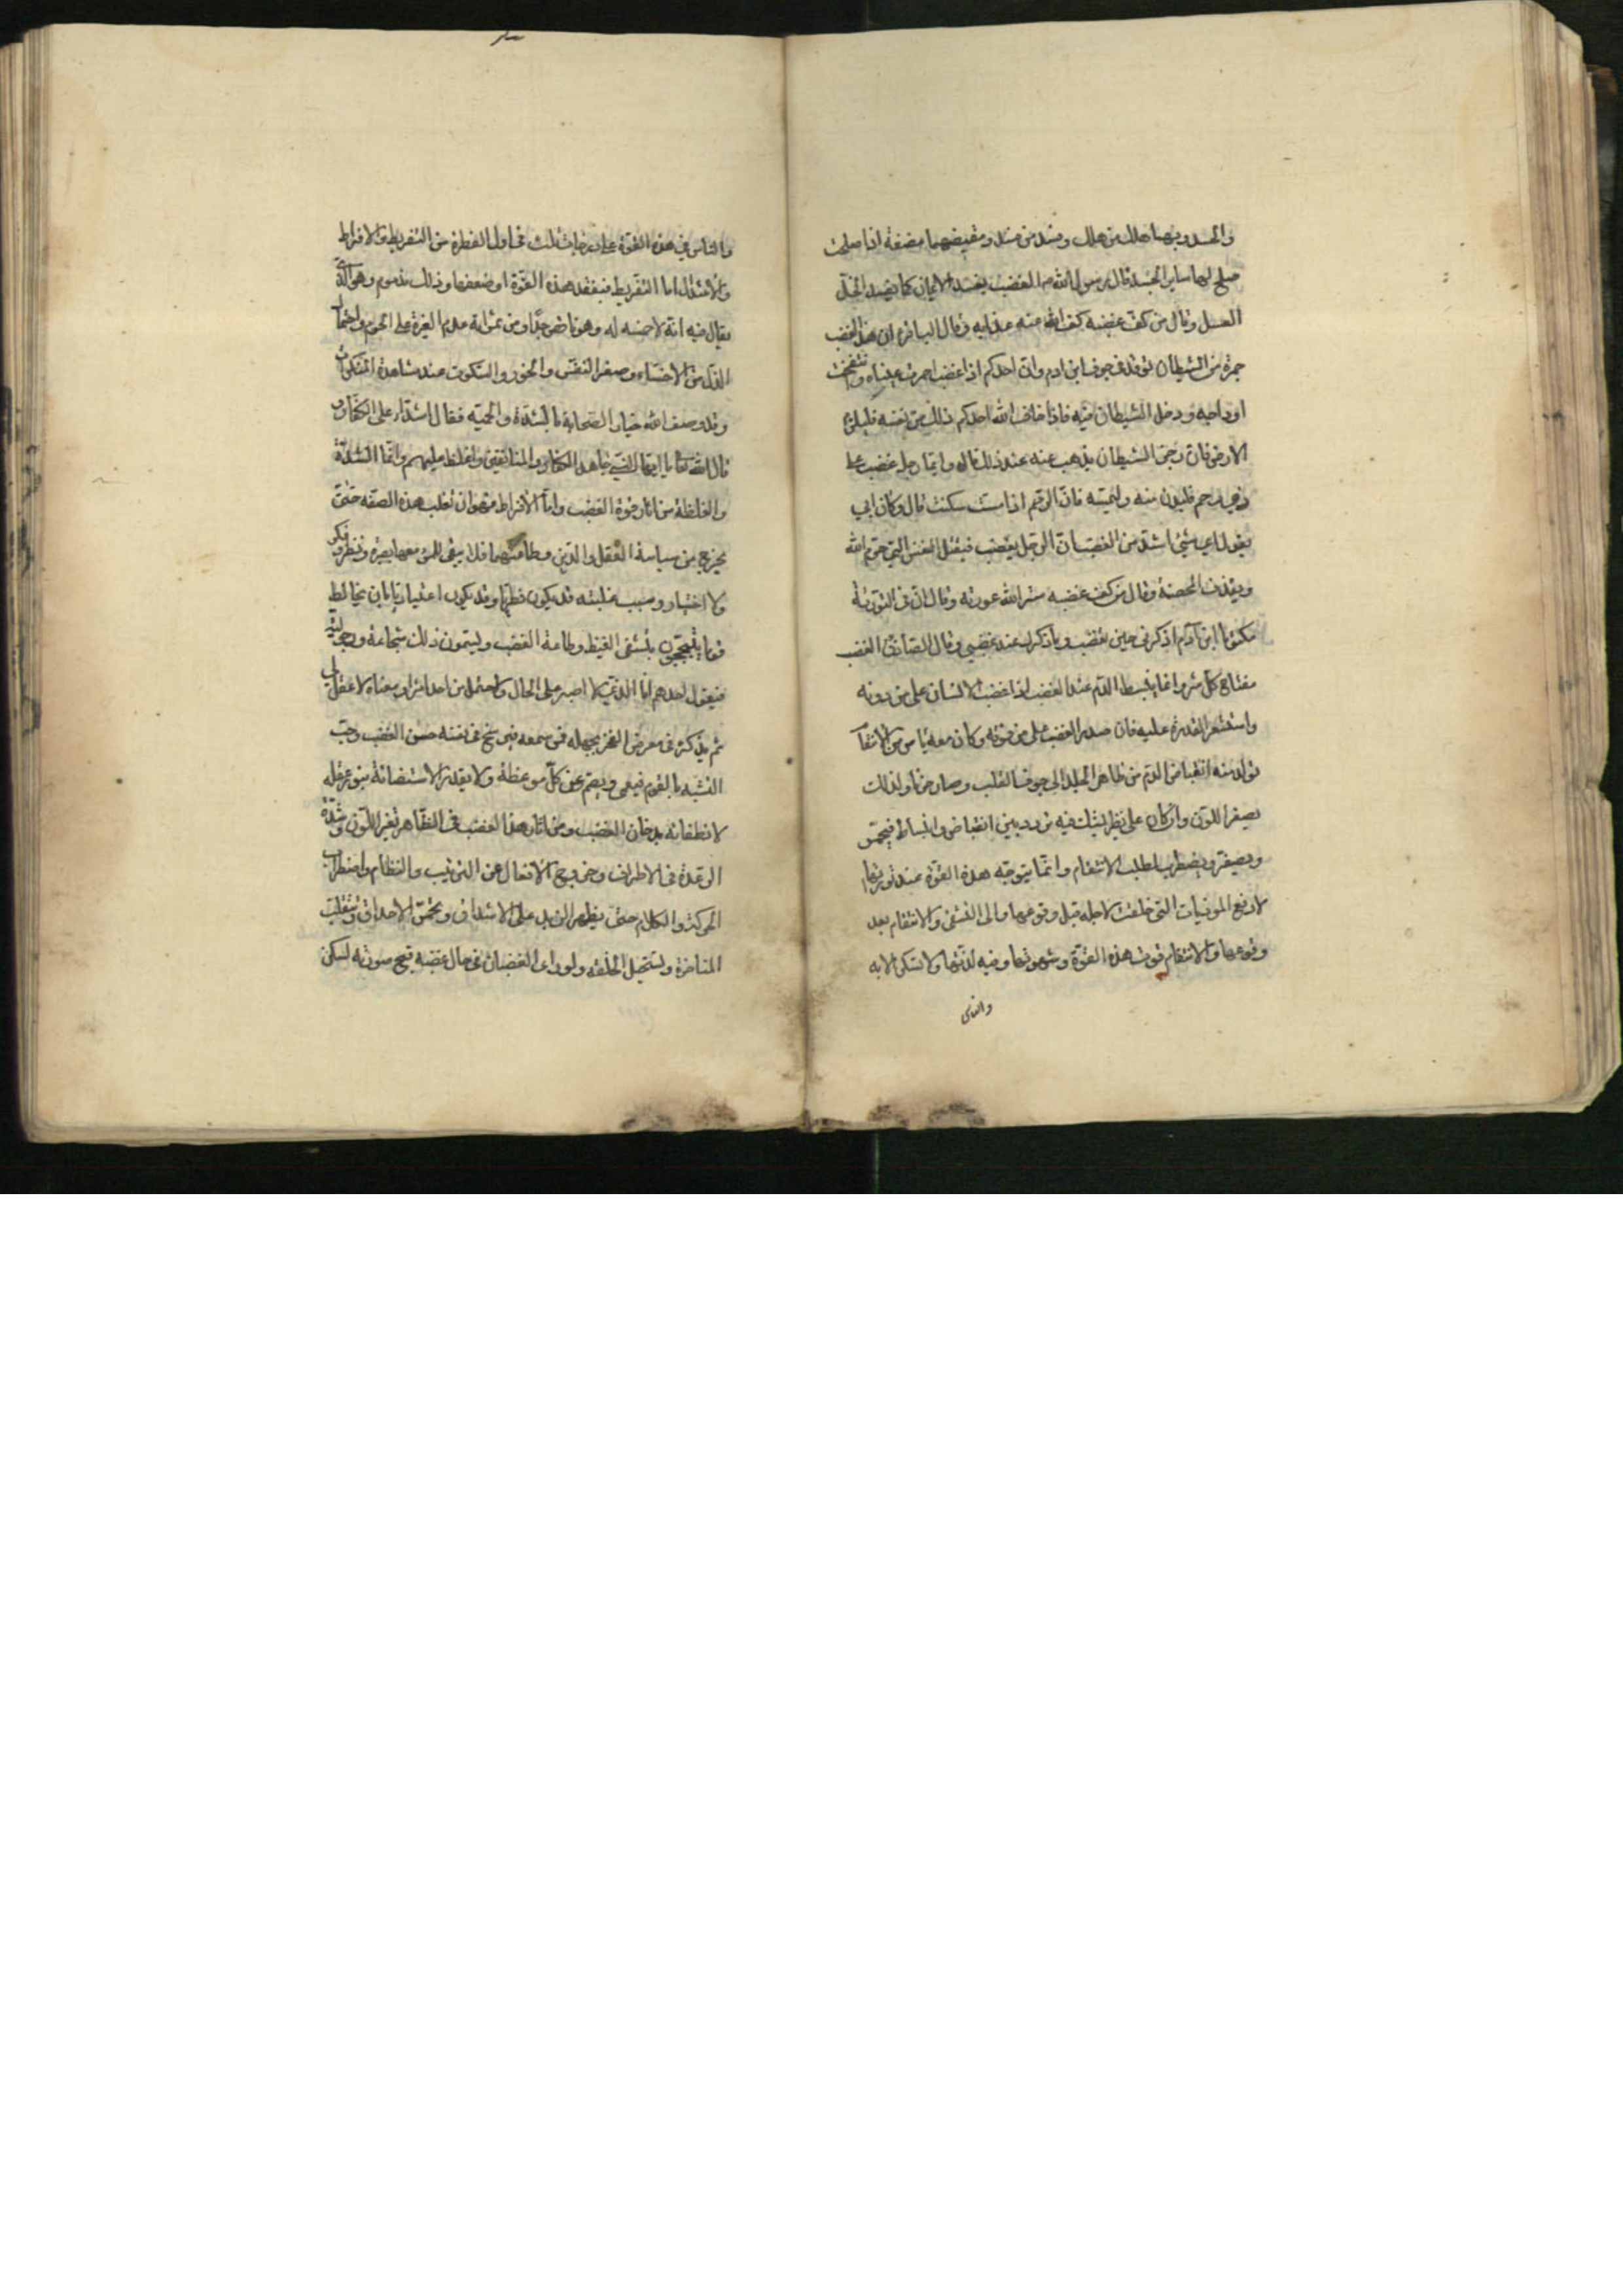 والحسد وبهما هلك من هلك وفسد من فسد ومفيضهما مضغة اذا صلحت
صلح لها سائر الجسد قال رسول الله ص الغضب يفسد الايمان كما يفسد الخل
العسل وقال من كف غضبه كف الله عنه عذابه وقال الباقر ع ان هذا الغضب
جمرة من الشيطان توقد في جوف ابن ادم وان احدكم اذا غضب احمرت عيناه وانتفخت
اوداجه ودخل الشيطان فيه فاذا خاف الله احدكم ذلك من نفسه فليلزم
الارض فان رجز الشيطان يذهب عنه عند ذلك قال وايما رجل غضب على
ذي رحم فليدن منه وليمسه فان الرحم اذا مست سكنت قال وكان ابي
يقول اي شئ اشد من الغضب ان الرجل يغضب فيقتل النفس التي حرم الله
ويقذف المحصنة وقال من كف غضبه ستر الله عورته وقال ان في التورية
مكتوبا ابن آدم اذكرني حين تغضب اذكرك عند غضبي وقال الصادق ع الغضب
مفتاح كل شر وانما ينبسط الدم عند الغضب اذا غضب الانسان على من دونه
واستشعر القدرة عليه فان صدر الغضب على من فوقه وكان معه ياس من الانتقام
تولد منه انقباض الدم من ظاهر الجلد الى جوف القلب وصار حزنا ولذلك
يصفر اللون وان كان على نظير يشك فيه تردد بين انقباض وانبساط فيحمر
ويصفر ويضطرب لطلب الانتقام وانما يتوجه هذه القوة عند ثورانها
لدفع الموذيات التي خلقت لاجله قبل وقوعها والى التشفي والانتقام بعد
وقوعها والانتقام قوت هذه القوة وشهوتها وفيه لذتها ولا تسكن الا به
والناس
والناس في هذه القوة على درجات ثلث في اول الفطرة من التفريط والافراط
والاعتدال اما التفريط فبفقد هذه القوة او ضعفها وذلك مذموم وهو الذي
يقال فيه انه لا حمية له وهو ناقص جدا ومن ثمراته عدم الغيرة على الحرم واحتمال
الذل من الاخساء وصغر النفس والخور والسكوت عند مشاهدة المنكرات
وقد وصف الله خيار الصحابة بالشدة والحمية فقال اشداء على الكفار و
قال الله تعالى يا ايها النبي جاهد الكفار والمنافقين واغلظ عليهم وانما الشدة
والغلظة من اثار قوة الغضب واما الافراط فهو ان تغلب هذه الصفة حتى
يخرج من سياسة العقل والدين وطاعتهما فلا يبقى للمرء معها بصيرة ونظر وفكر
ولا اختيار وسبب غلبته قد يكون فطريا وقد يكون اعتياديا بان يخالط
قوما يتبجحون بتشفي الغيظ وطاعة الغضب ويسمون ذلك شجاعة ورجولية
فيقول احدهم انا الذي لا اصبر على المحال ولا احتمل من احد امرا ومعناه لا عقل لي
ثم يذكره في معرض الفخر بجهله فمن سمعه فيرسخ في نفسه حسن الغضب وحب
التشبه بالقوم فيعمى ويصم عن كل موعظة ولا يقدر الاستضائة بنور عقله
لانطفائه بدخان الغضب ومن اثار هذا الغضب في الظاهر تغير اللون وشدة
الرعدة في الاطراف وخروج الافعال عن الترتيب والنظام واضطراب
الحركة والكلام حتى يظهر الزبد على الاشداق ويحمر الاحداق وتنقلب
المناخر ويستحيل الخلقة ولو راى الغضبان في حال غضبه قبح صورته لسكن